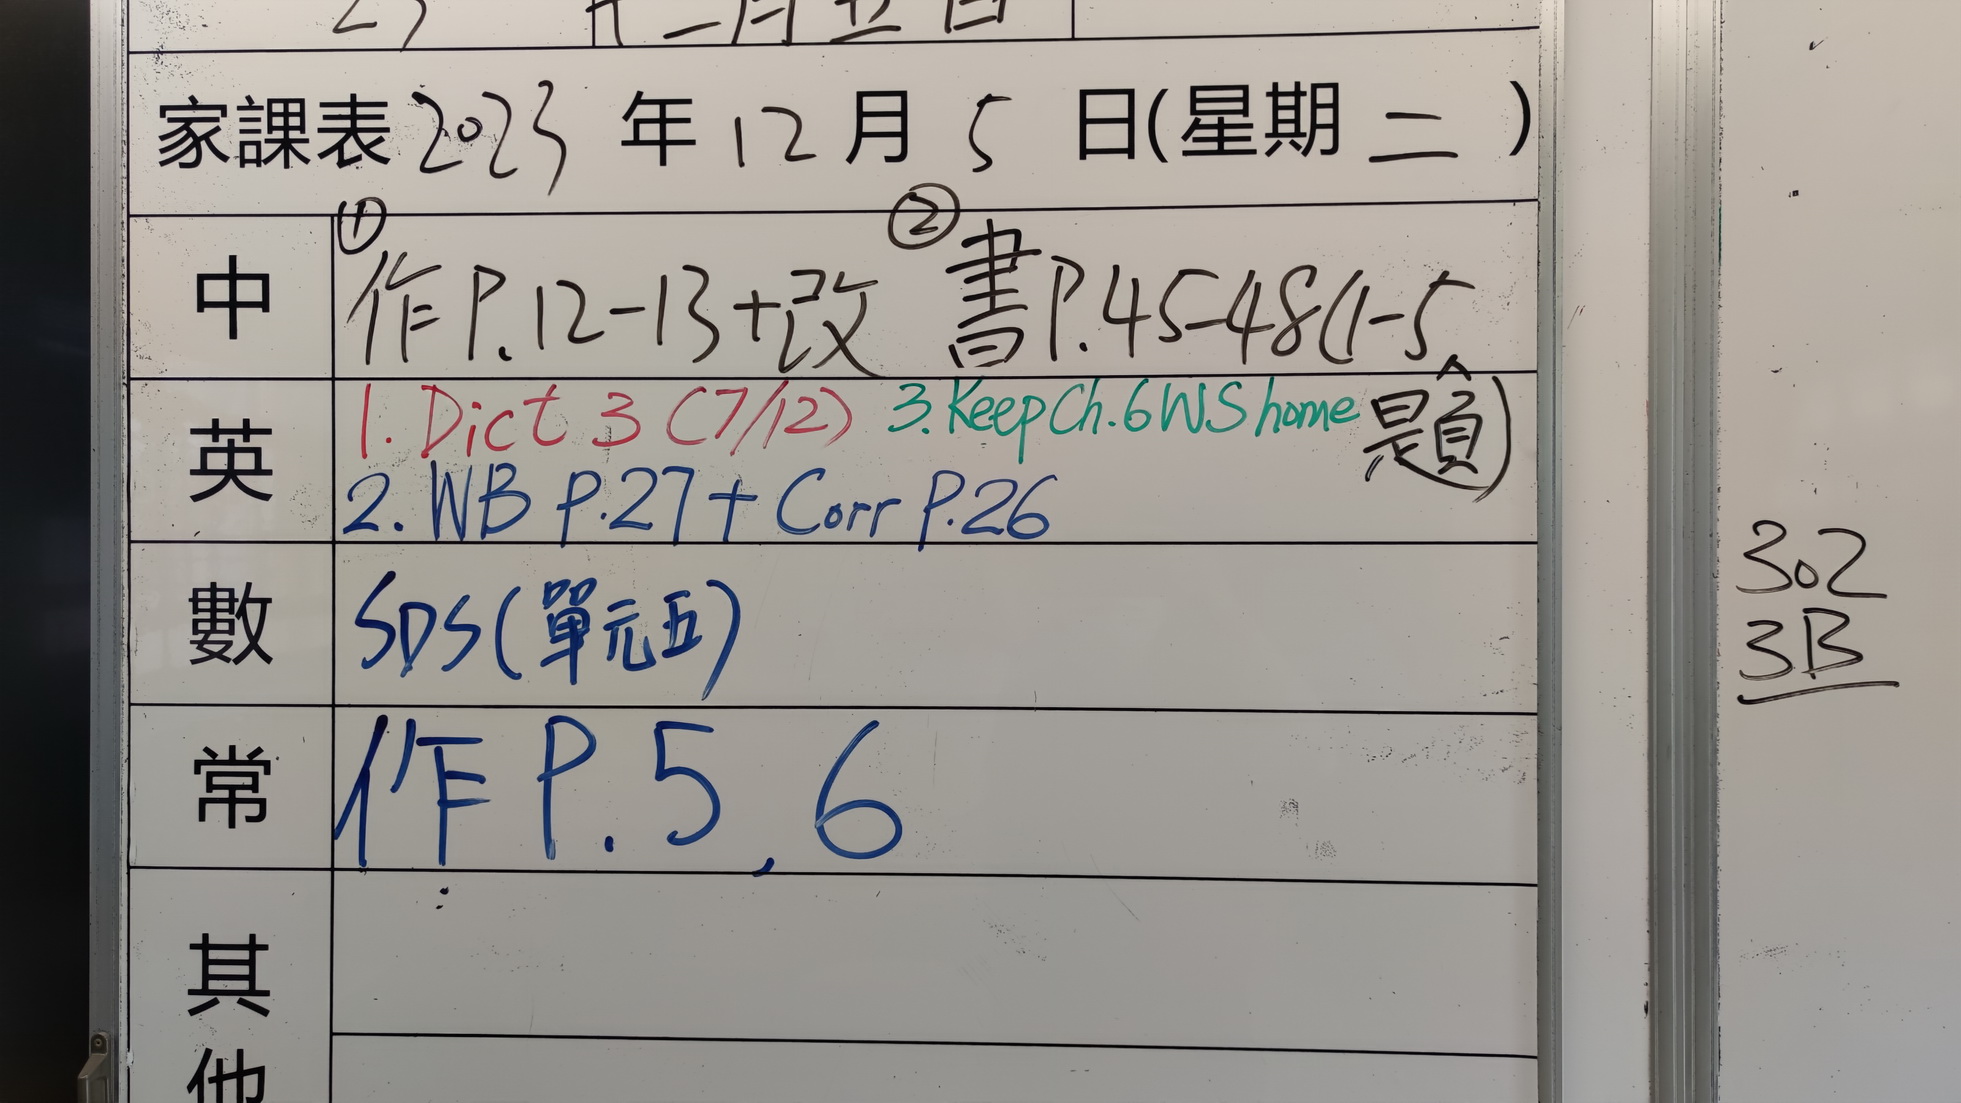 23 十二月五日
家課表 2023 年 12 月 5 日(星期 二 )
中 ① 作P.12-13+改 ② 書P.45-48(1-5題)
英 1. Dict 3 (7/12) 3. Keep Ch. 6 WS home
2. WB P.27 + Corr P.26
數 SDS(單元五)
常 作 P. 5, 6
其他
302
3B